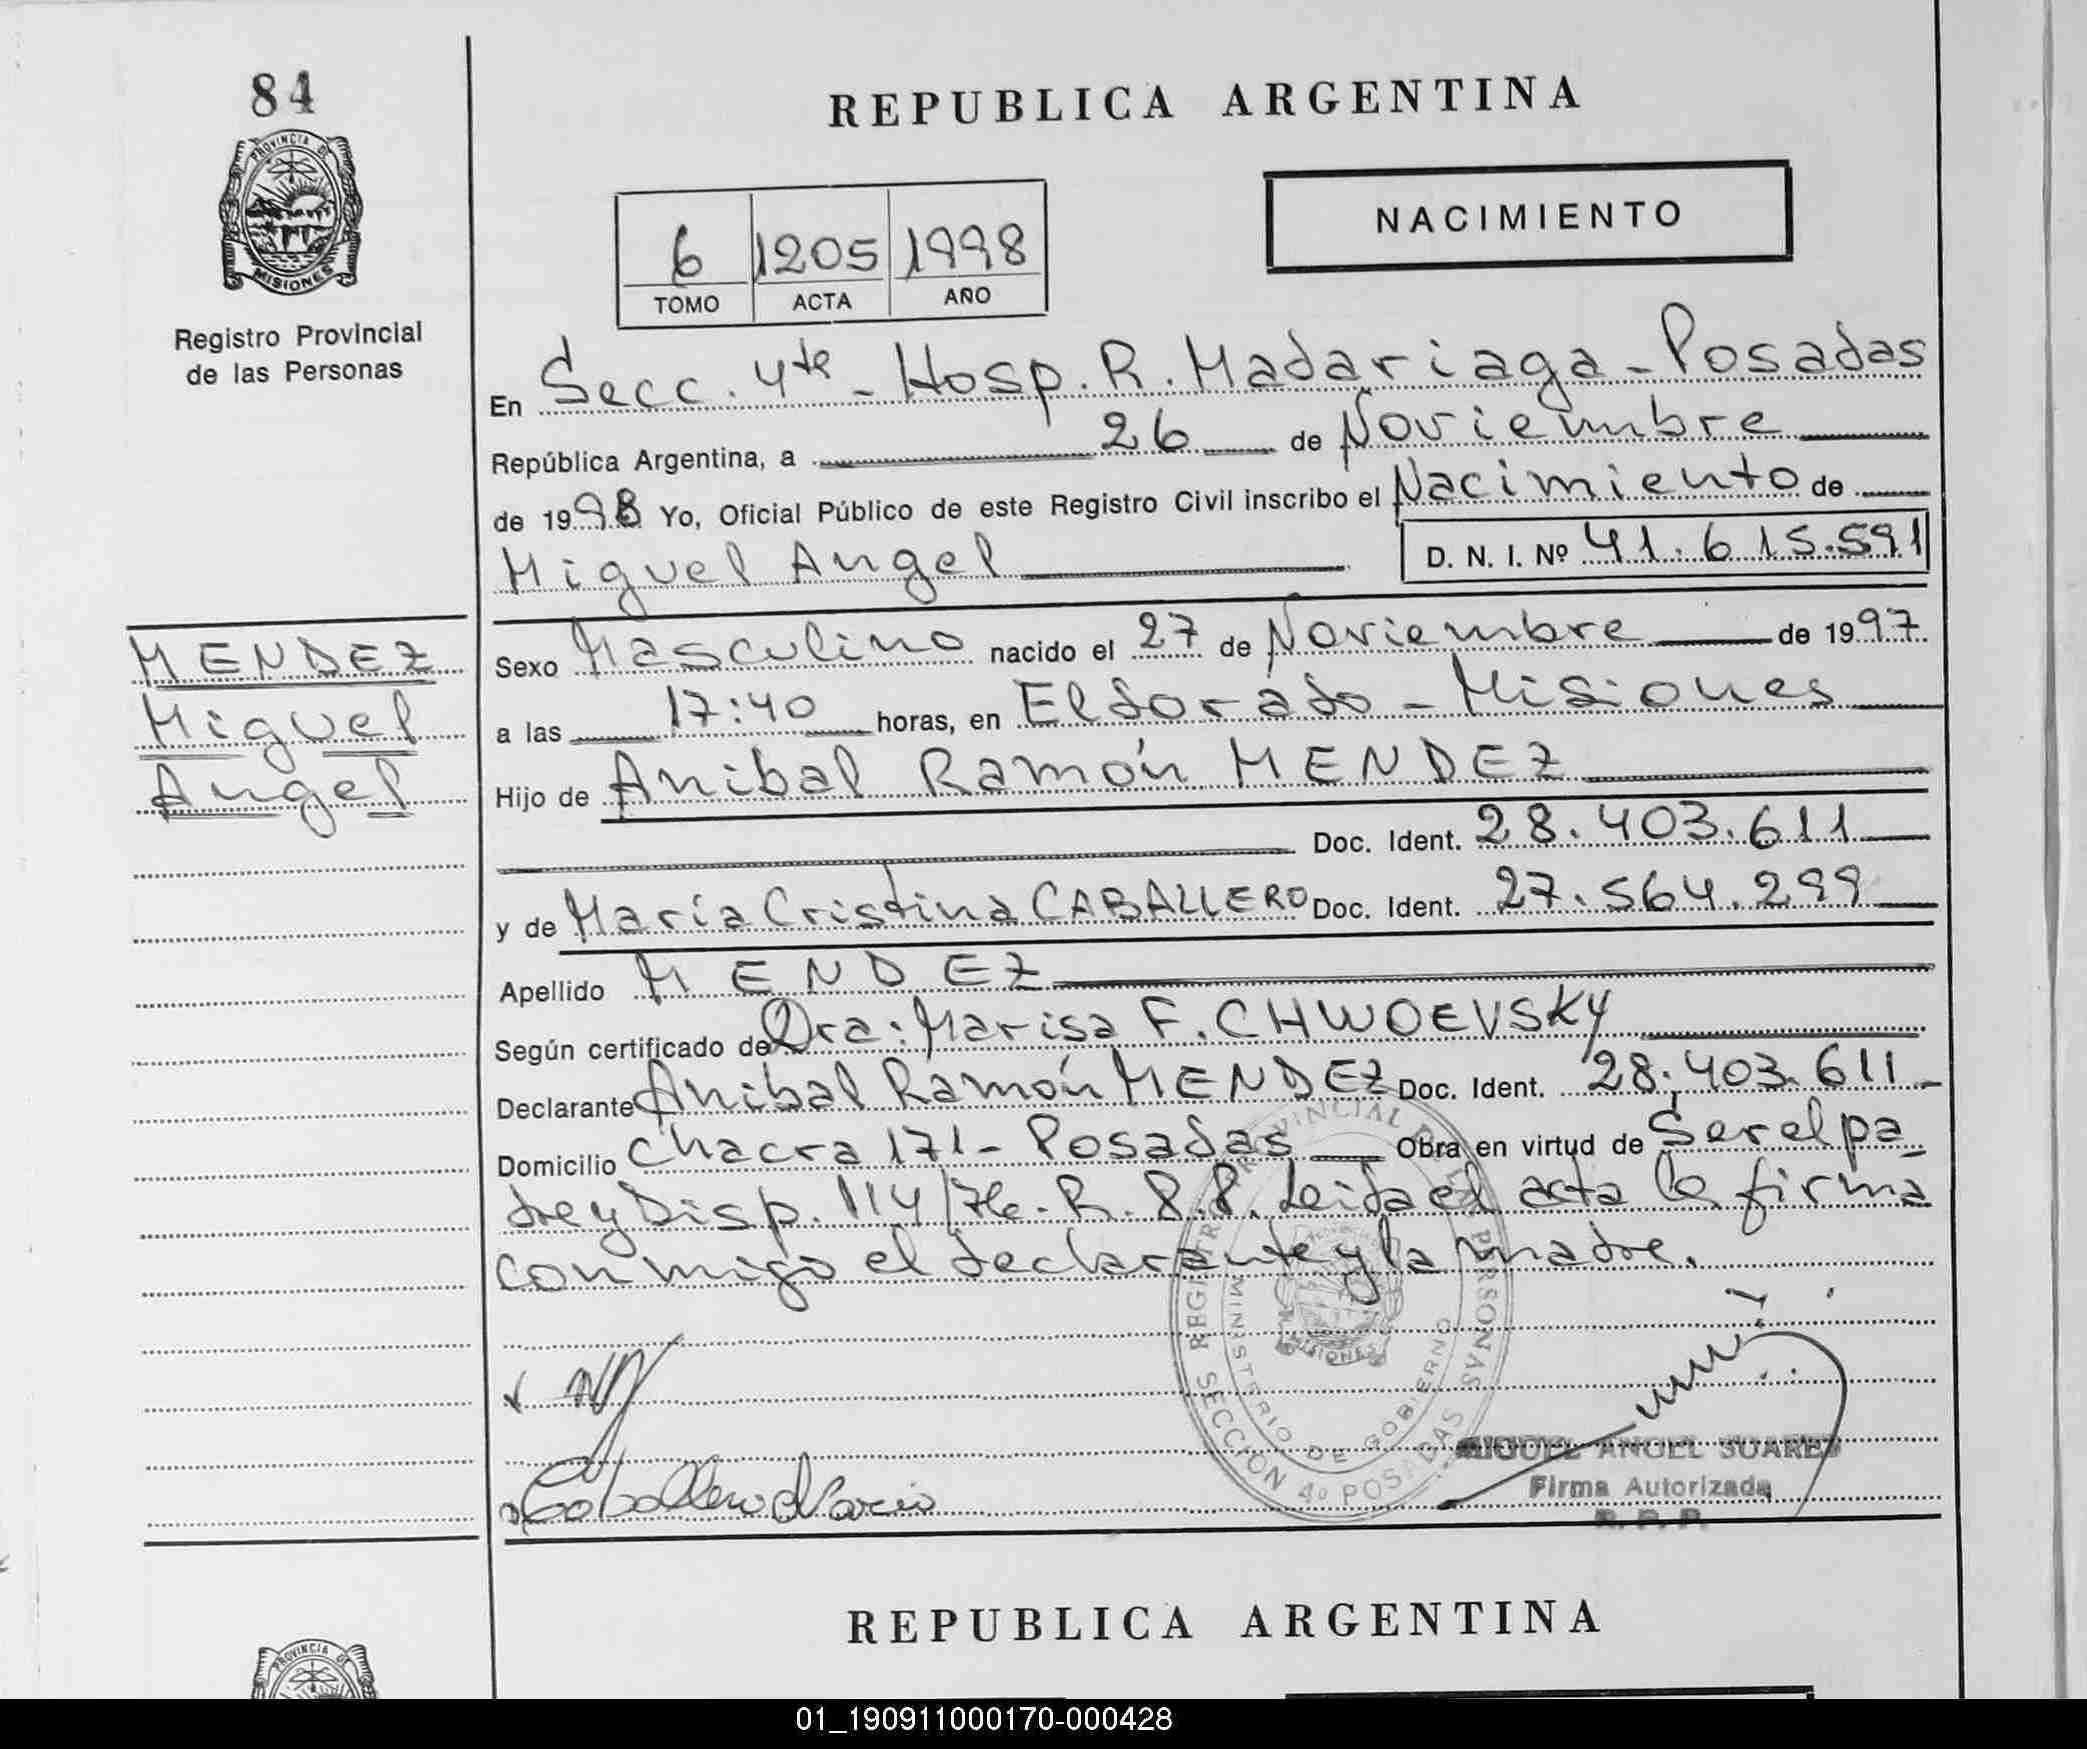 84
REPUBLICA ARGENTINA
PROVINCIA DE
MISIONES
Registro Provincial
de las Personas
NACIMIENTO
6 1205 1998
TOMO ACTA AÑO
En Secc. 4ta - Hosp. R. Madariaga - Posadas
República Argentina, a 26 de Noviembre
de 1998 Yo, Oficial Público de este Registro Civil inscribo el Nacimiento de
Miguel Angel D. N. I. Nº 41.615.591
MENDEZ
Miguel
Angel
Sexo Masculino nacido el 27 de Noviembre de 1997
a las 17:40 horas, en Eldorado - Misiones
Hijo de Anibal Ramón MENDEZ
Doc. Ident. 28.403.611
y de María Cristina CABALLERO Doc. Ident. 27.564.299
Apellido MENDEZ
Según certificado de Dra: Marisa F. CHWOEVSKY
Declarante Anibal Ramón MENDEZ Doc. Ident. 28.403.611
Domicilio Chacra 171 - Posadas Obra en virtud de Ser el pa
dre y Disp. 114/76. R. 8.8. Leida el acta la firma
conmigo el declarante y la madre.
REGISTRO PROVINCIAL DE LAS PERSONAS
MINISTERIO DE GOBIERNO
MISIONES
SECCION 4º POSADAS
Caballero Maria
MIGUEL ANGEL SUAREZ
Firma Autorizada
R. P. P.
REPUBLICA ARGENTINA
PROVINCIA DE
01_190911000170-000428